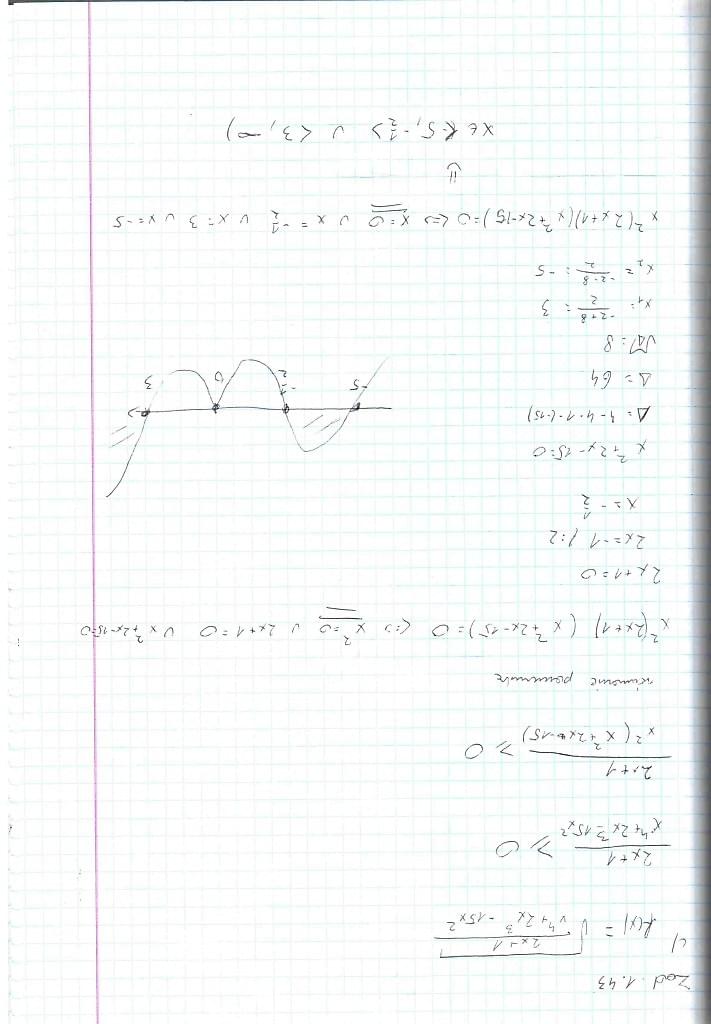 Zad. 1.43
c)
f(x) = √((2x+1)/(x⁴+2x³-15x²))
(2x+1)/(x⁴+2x³-15x²) ≥ 0
(2x+1)/(x²(x²+2x-15)) ≥ 0
równanie pomocnicze
x²(2x+1) (x²+2x-15)=0 <=> x²=0 ∪ 2x+1=0 ∪ x²+2x-15=0
2x+1=0
2x=-1 /:2
x=-1/2
x²+2x-15=0
Δ=4-4·1·(-15)
Δ=64
√Δ=8
x₁=(-2+8)/2=3
x₂=(-2-8)/2=-5
-5 -1/2 0 3
x²(2x+1)(x²+2x-15)=0 <=> x=0 ∪ x=-1/2 ∪ x=3 ∪ x=-5
x∈<-5,-1/2> ∪ <3,∞)